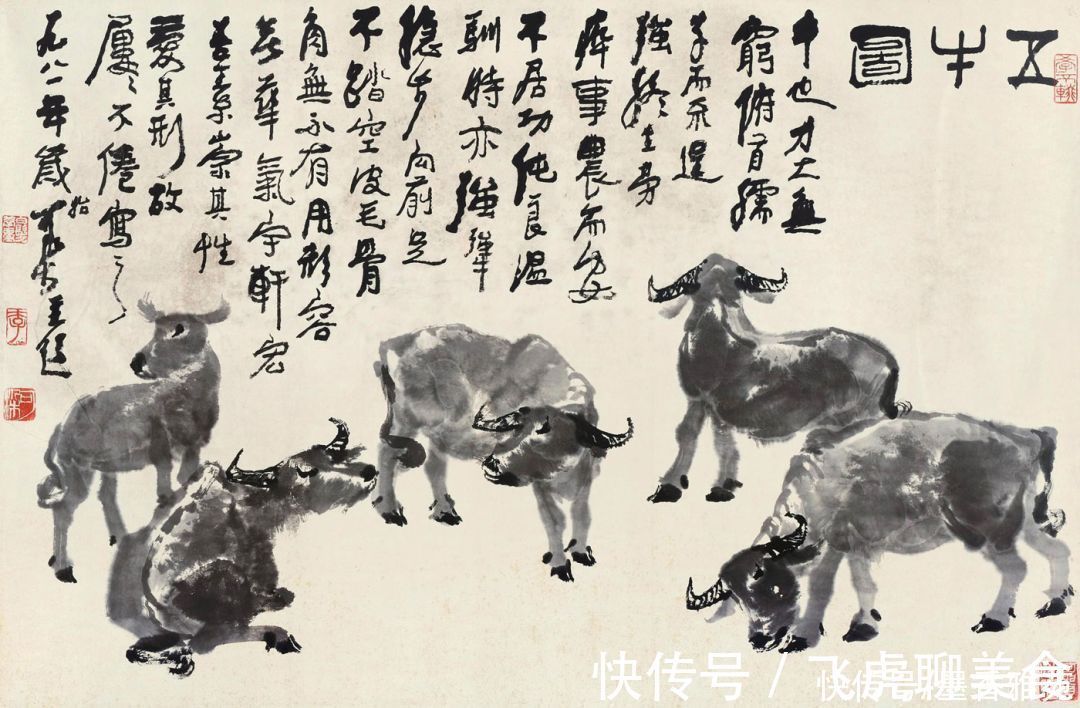 五牛圖
牛也力大無
窮俯首孺
子而不逞
強終生勞
瘁事農而安
不居功純良溫
馴時亦強犟
穩步向前足
不踏空皮毛骨
角無不有用形容
無華氣宇軒宏
吾素崇其性
愛其形故
屢屢不倦寫之
一九八一年歲始可染並題
李
可染
快传号 / 飞虎聊美食